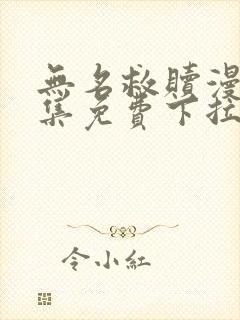 無名救贖漫
集免費下拉
令小紅